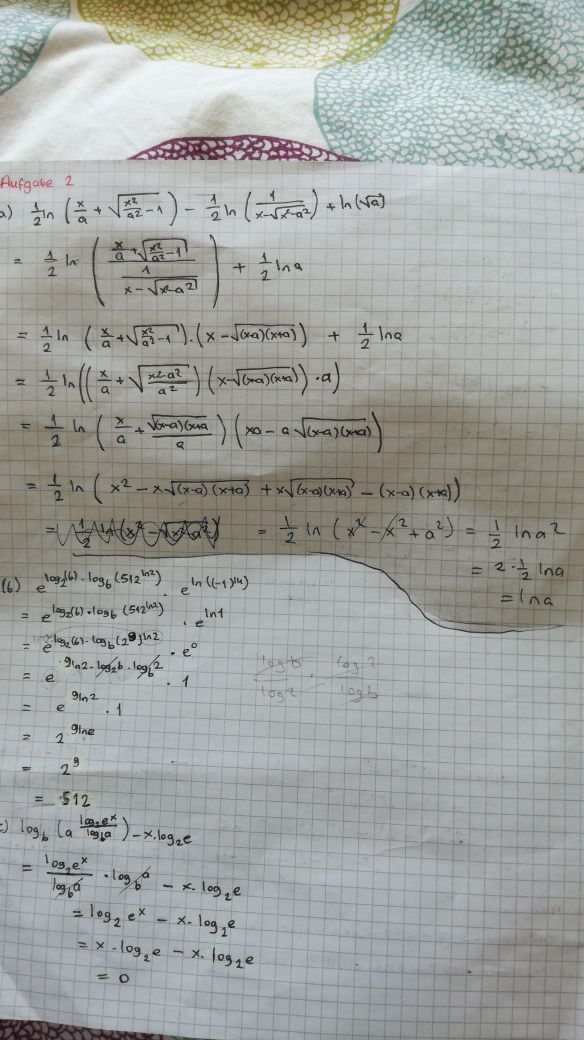 Aufgabe 2
a) 1/2 ln (x/a + √(x²/a² - 1)) - 1/2 ln (1/(x-√(x²-a²))) + ln(√a)
= 1/2 ln ((x/a + √(x²/a² - 1))/(1/(x-√(x²-a²)))) + 1/2 ln a
= 1/2 ln (x/a + √(x²/a² - 1)) · (x - √((x-a)(x+a))) + 1/2 ln a
= 1/2 ln ((x/a + √((x²-a²)/a²)) (x-√((x-a)(x+a))) · a)
= 1/2 ln (x/a + √((x-a)(x+a))/a) (xa - a √((x-a)(x+a)))
= 1/2 ln (x² - x√((x-a)(x+a)) + x√((x-a)(x+a)) - (x-a)(x+a))
= 1/2 ln (x² - x² + a²) = 1/2 ln a²
= 2·1/2 ln a
= ln a
(b) e^(log₂(b)·log_b(512^(ln2))) · e^(ln((-1)^14))
= e^(log₂(b)·log_b(512^(ln2))) · e^(ln1)
= e^(log₂(b)·log_b(2^9)^(ln2)) · e⁰
= e^(9ln2·log₂b·log_b2) · 1
log b / log 2 · log 2 / log b
= e^(9ln2) · 1
= 2^(9lne)
= 2⁹
= 512
c) log_b (a^(log₂e^x / log_b a)) - x·log₂e
= log₂e^x / log_b a · log_b a - x·log₂e
= log₂ e^x - x·log₂e
= x·log₂e - x·log₂e
= 0